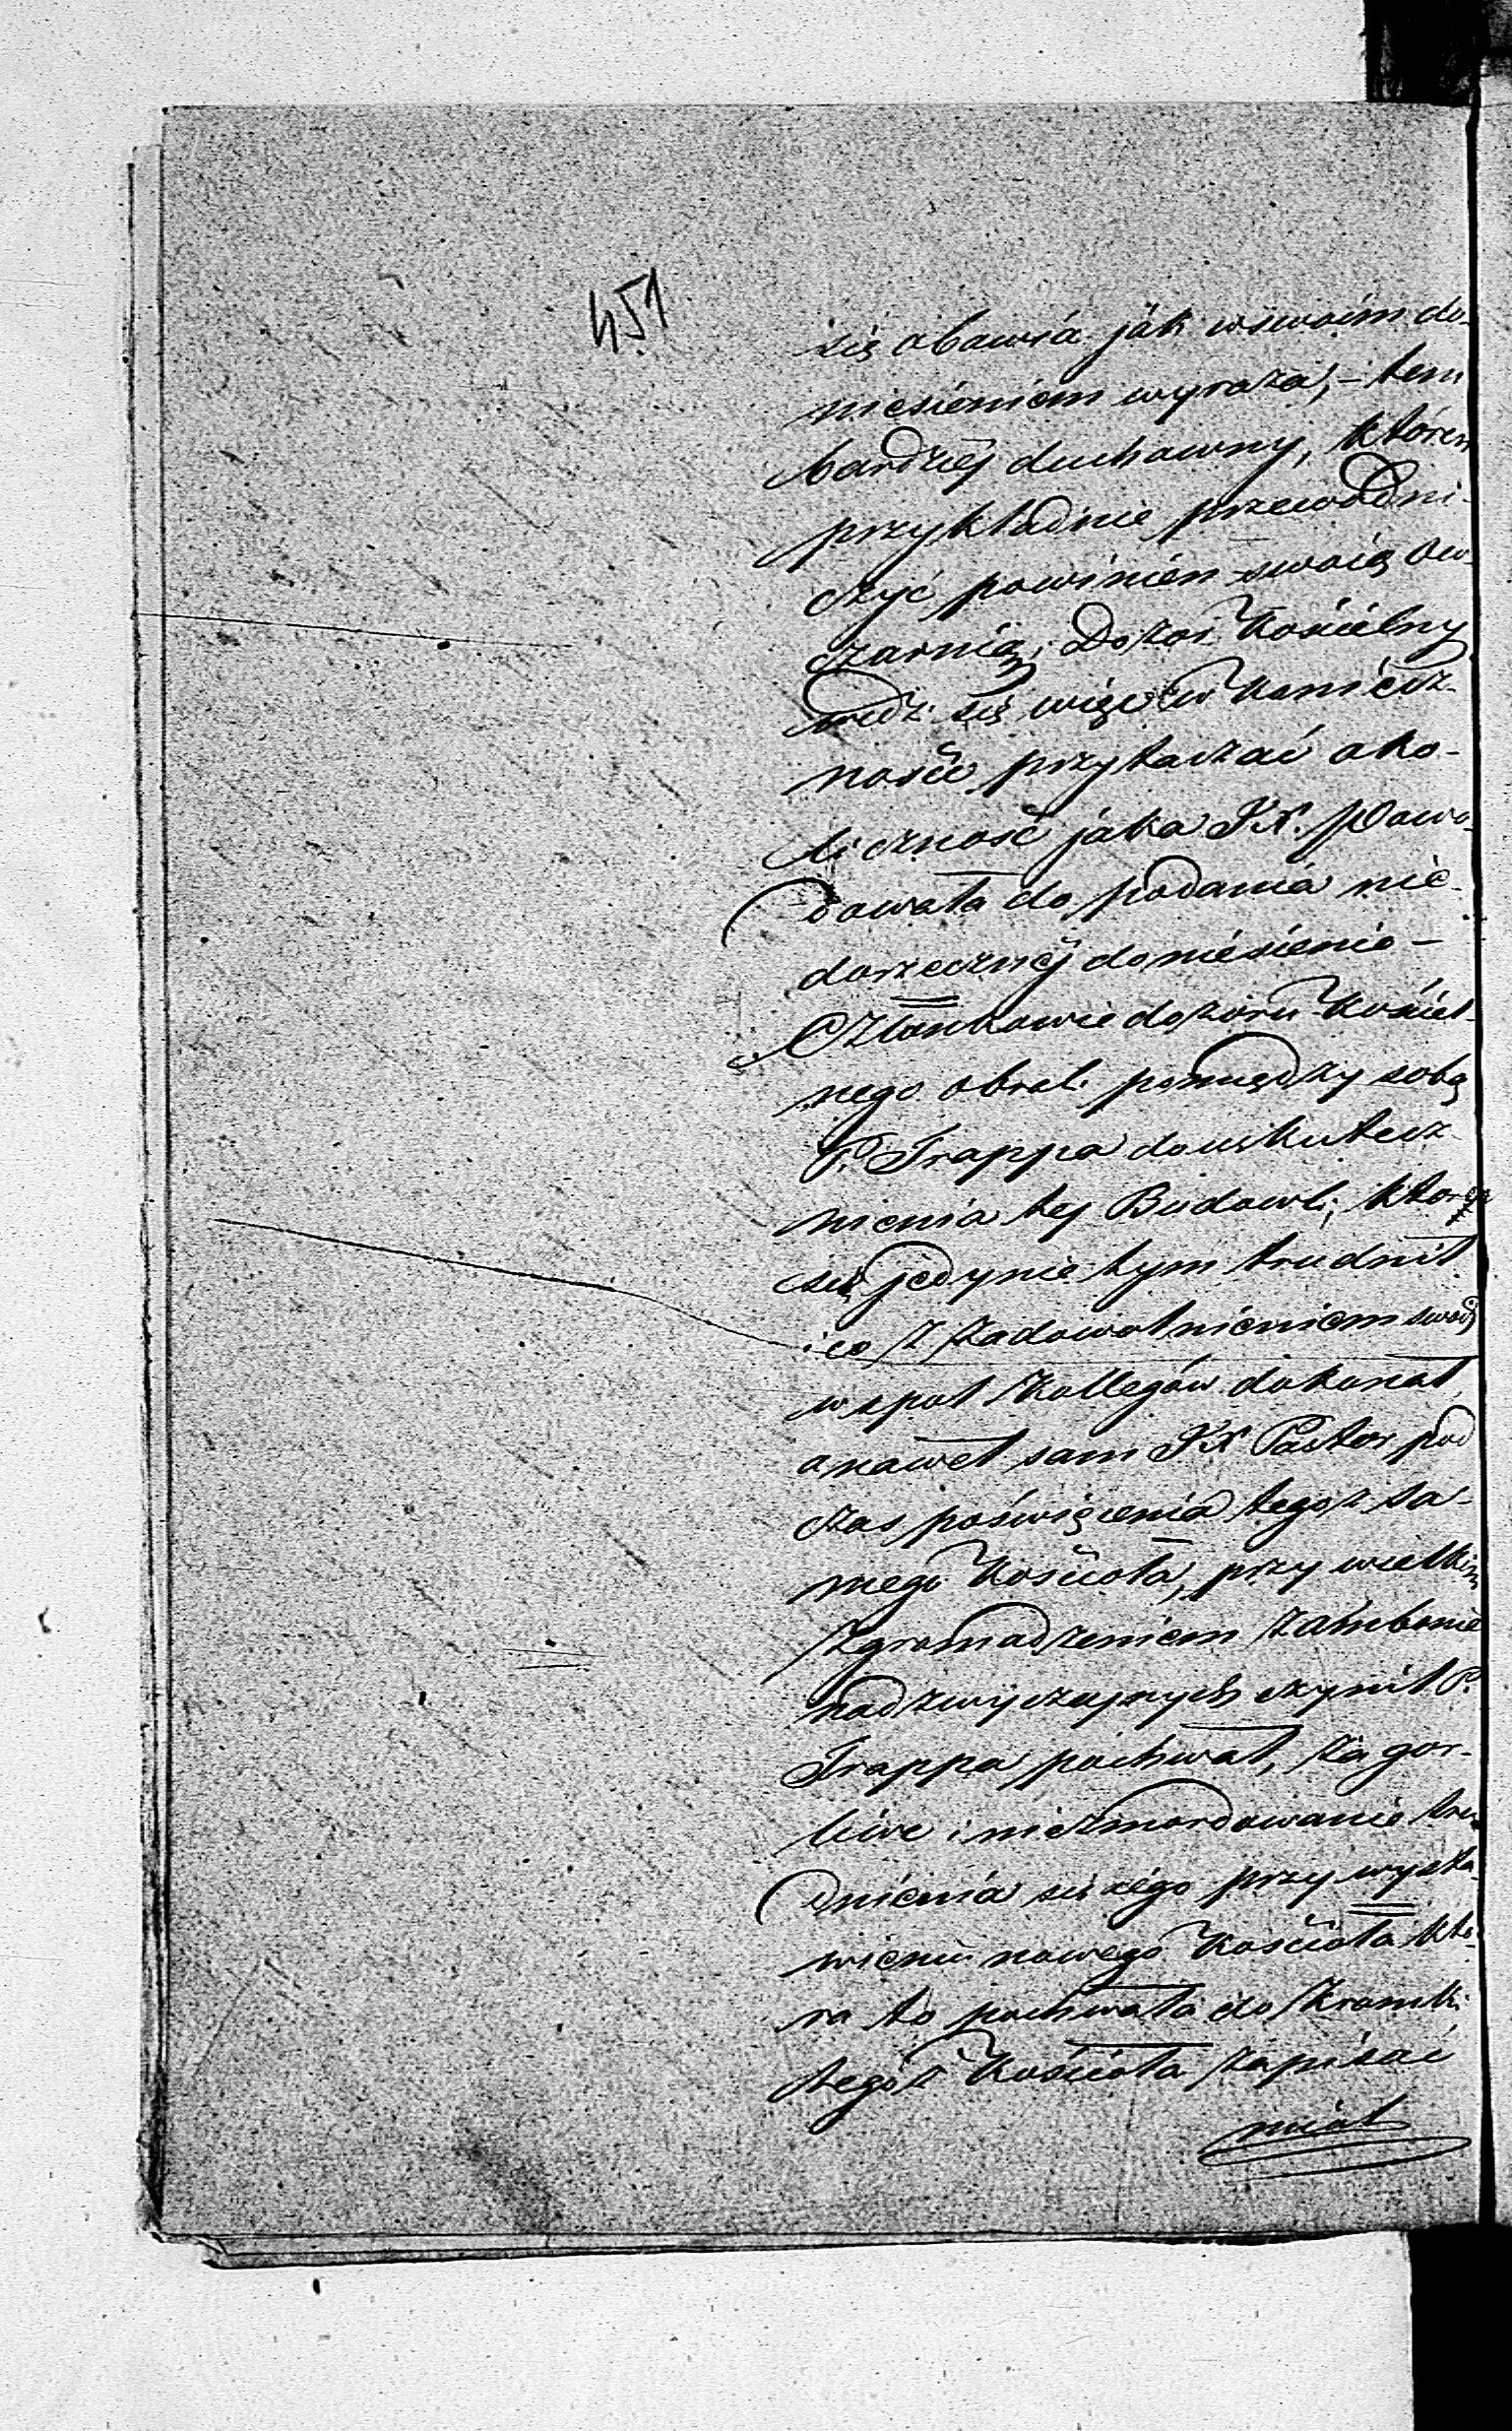 451
się obawia jak w swoim do-
niesieniem wyraża, – tem
bardziéj duchowny, któren
przykładnie przewodni-
czyć powinien swoią ow-
czarnią; Dozór Kościelny
widzi się więc w koniecz-
ności przytaczać oko-
liczność jaka JX. powo-
dowała do podania nie-
dorzecznéj doniesienie –
Członkowie dozoru Kościel-
nego obrali pomiędzy sobą
P. Trappa do uskutecz-
nienia tej Budowli, który
się jedynie tym trudnił
i co z zadowolnieniem swoij
współ Kollegów dokonał
a nawet sam JX Pastor pod
czas poświęcenia tegoż sa-
mego Kościoła, przy wielkim
zgromadzeniem
nadzwyczajnych czynił P.
Trappa pochwał, za gor-
liwe i niezmordowanie tru-
dnienia się jego przy wysta-
wieniu nowego Kościoła któ-
ra to pochwała do Kroniki
tegoż Kościoła zapisać
miał